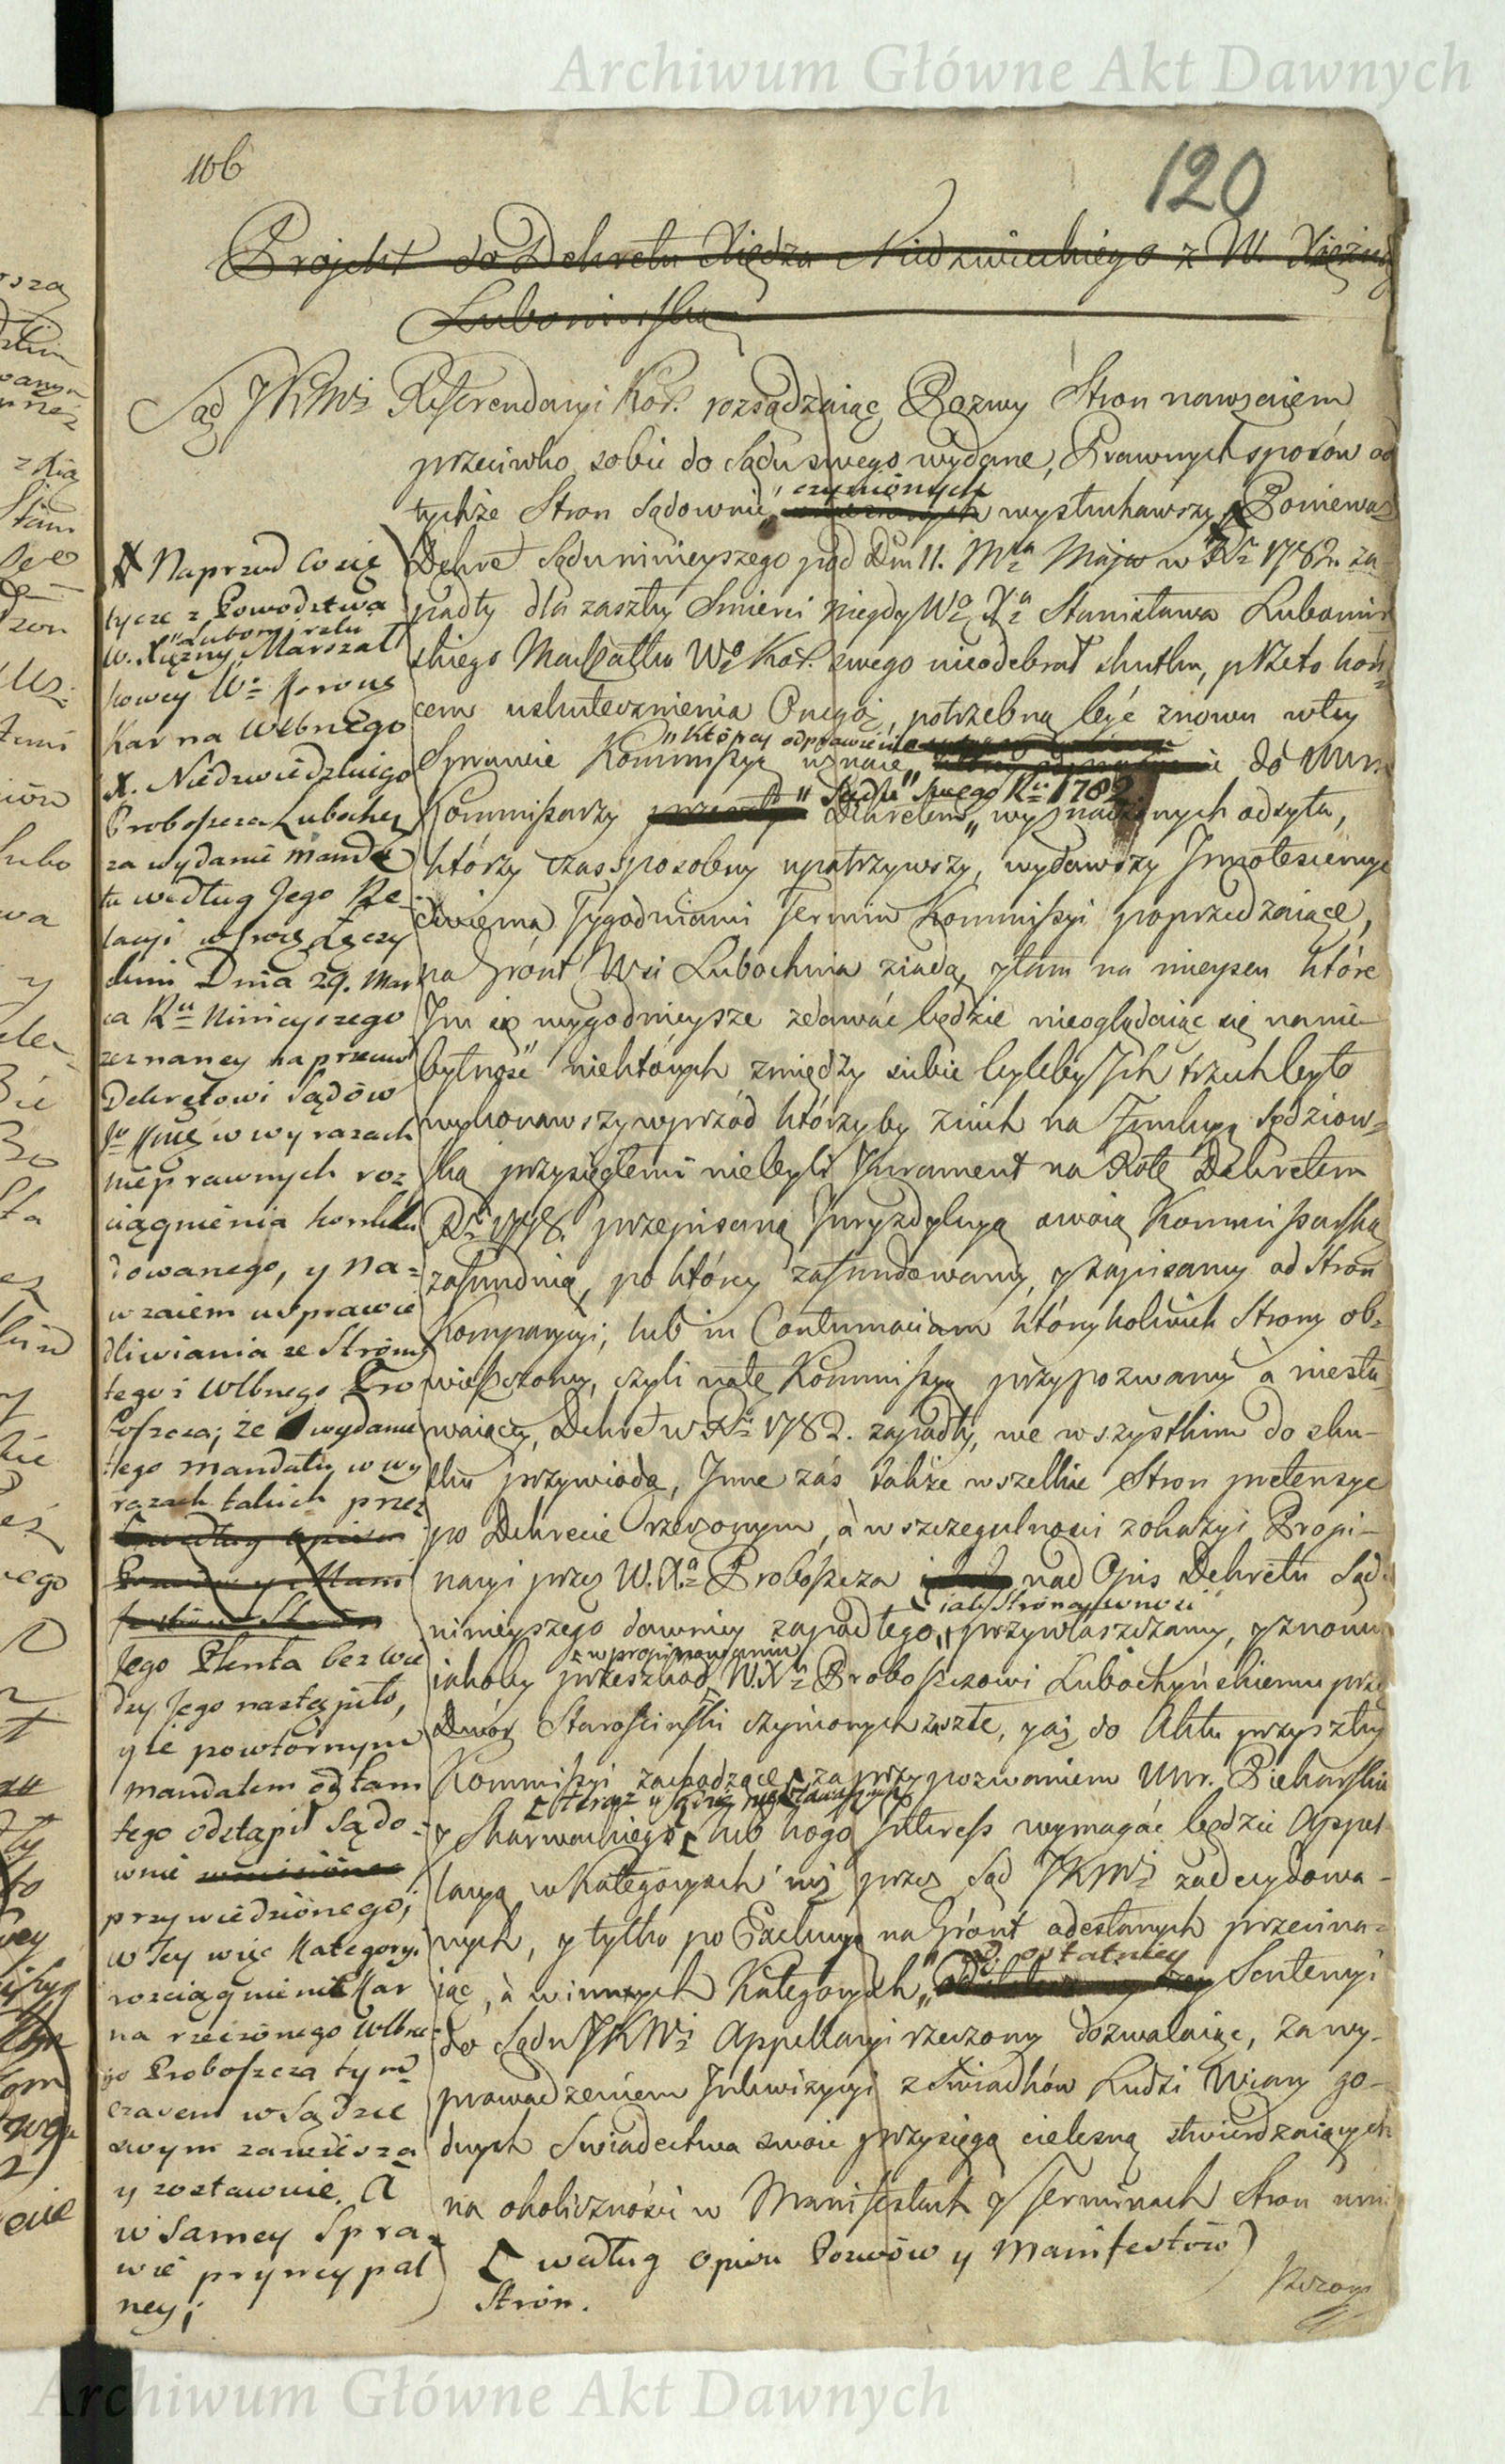 Archiwum Główne Akt Dawnych
106
120
Projekt do Dekretu Xiędza Niedzwieckiego z W. Xiężną
Lubomirską
Sąd JKMci Referendaryi Kor. rozsądzaiąc Pozwy Stron nawzaiem
przeciwko sobie do Sądu swego wydane, Prawnych sporów od
tychże Stron Sądownie czynionych wysłuchawszy, Ponieważ
Dekret Sądu ninieyszego pod Dm 11. Mca Maja w Rku 1782. za-
padły dla zaszłey Smierci niegdy Wo Xa Stanisława Lubomir-
skiego Marszałka Wo Kor. swego nieodebrał skutku, przeto koń-
cem uskutecznienia Onegoż, potrzebną być znowu w tey
Sprawie Kommissyą uznaie, " którey odprawienie do Urr.
Kommissarzy Dekretem " Sądu " swego Ru 1782 wyznaczonych odsyła,
którzy czas sposobny upatrzywszy, wydawszy Innotescencye
dwiema Tygodniami Termin Kommissyi poprzedzaiące,
na Grónt Wsi Lubochnia ziadą, y tam na mieyscu które
Im się wygodnieysze zdawać będzie nieoglądaiąc się na nie-
bytność niektórych zmiędzy siebie byleby Ich trzech było
wykonawszy wprzód którzyby znich na Funkcyą Sędziow-
ską przysięgłemi niebyli Jurament na Rotę Dekretem
Ru 1778. przepisaną Juryzdykcyą swoią Kommissarską
zafundują, po którey zafundowaniu, y zapisaney od Stron
Komparycyi, lub in Contumaciam którykolwiek Strony ob-
wieszczoney, czyli na tę Kommissyą przypozwaney a niesta-
waiącey, Dekret w Rku 1782. zapadły, we wszystkim do sku-
tku przywiodą, Inne zaś także wszelkie Stron pretensye
po Dekrecie rzeczonym, à w szczegulności z okazyi Propi-
nacyi przez W. Xa Proboszcza nad Opis Dekretu Sąd.
ninieyszego dawniey zapadłego, przywłaszczaney, y znowu
iakoby przeszkod " w propinowaniu W. Xu Proboszczowi Lubochyńskiemu przez
Dwór Starościński czynionych zaszłe, y aż do Aktu przyszłey
Kommissyi zachodzące za przypozwaniem Urr. Piekarskie
y Skarwackiego lub kogo Interess wymagać będzie Appel-
lacyą w Kategoryach iuż przez Sąd JKMci zadecydowa-
nych, y tylko po Exekucyą na Grónt odesłanych przecina-
iąc, à w innych Kategoryach " od ostatniey Sentencyi
do Sądu JKMci Appellacyi rzeczoney dozwalaiąc, za wy-
prowadzeniem Inkwizycyi z Swiadków Ludzi Wiary go-
dnych Swiadectwa swoie przysięgą cielesną stwierdzaiących
na okoliczności w Manifestach y Terminach Stron
według opisu Pozwów y Manifestów
Stron.
Naprzod Co się
tycze z Powodztwa
W. Xiężny " Lubomirskiey Marszał
kowey Wo Korony
Kar na Wlbnego
X. Niedzwiedzkiego
Proboszcza Lubochen
za wydanie manda
tu według Jego Re-
lacyi w Grodzie Łęczy
ckim Dnia 29. Mar
ca Ru Ninieyszego
zeznaney na przeciw
Dekretowi Sądów
Jo Kmci w wyrazach
nieprawnych roz-
ciągnienia konklu
dowanego, y na-
wzaiem usprawie
dliwiania ze Strony
tegoż Wlbnego Pro
boszcza; że wydanie
tego mandatu w wy
razach takich przez
Jego Plenta bez wie
dzy Jego nastąpiło,
y że powtórnym
mandatem od tam
tego odstąpił Sądo-
wnie
przywiedzionego;
w Tey więc Kategoryi
rozciągnienie Kar
na rzeczonego Wlbne-
go Proboszcza tym
czasem w Sądzie
swym zawiesza
y zostawuie. A
w samey Spra-
wie pryncypal
ney;
Archiwum Główne Akt Dawnych